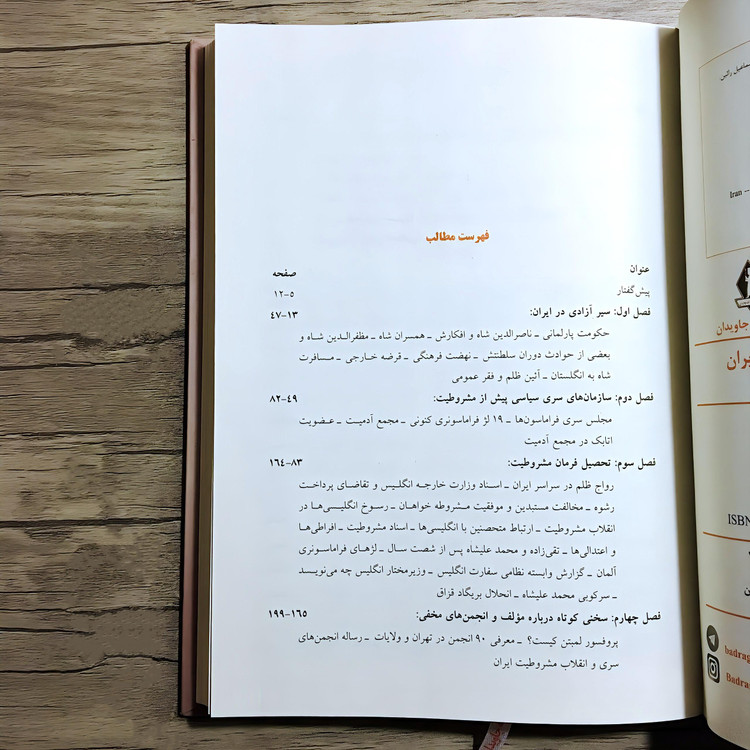 فهرست مطالب
عنوان صفحه
پیش‌گفتار ۵-۱۲
فصل اول: سیر آزادی در ایران: ۱۳-۴۷
حکومت پارلمانی ـ ناصرالدین شاه و افکارش ـ همسران شاه ـ مظفرالدین شاه و
بعضی از حوادث دوران سلطنتش ـ نهضت فرهنگی ـ قرضه خارجی ـ مسافرت
شاه به انگلستان ـ آئین ظلم و فقر عمومی
فصل دوم: سازمان‌های سری سیاسی پیش از مشروطیت: ۴۹-۸۲
مجلس سری فراماسون‌ها ـ ۱۹ لژ فراماسونری کنونی ـ مجمع آدمیت ـ عضویت
اتابک در مجمع آدمیت
فصل سوم: تحصیل فرمان مشروطیت: ۸۳-۱۶۴
رواج ظلم در سراسر ایران ـ اسناد وزارت خارجه انگلیس و تقاضای پرداخت
رشوه ـ مخالفت مستبدین و موفقیت مشروطه خواهان ـ رسوخ انگلیسی‌ها در
انقلاب مشروطیت ـ ارتباط متحصنین با انگلیسی‌ها ـ اسناد مشروطیت ـ افراطی‌ها
و اعتدالی‌ها ـ تقی‌زاده و محمد علیشاه پس از شصت سال ـ لژهای فراماسونری
آلمان ـ گزارش وابسته نظامی سفارت انگلیس ـ وزیرمختار انگلیس چه می‌نویسد
ـ سرکوبی محمد علیشاه ـ انحلال بریگاد قزاق
فصل چهارم: سخنی کوتاه درباره مؤلف و انجمن‌های مخفی: ۱۶۵-۱۹۹
پروفسور لمبتن کیست؟ ـ معرفی ۹۰ انجمن در تهران و ولایات ـ رساله انجمن‌های
سری و انقلاب مشروطیت ایران
Iran --
جاویدان
ISBN
badrag
Badra